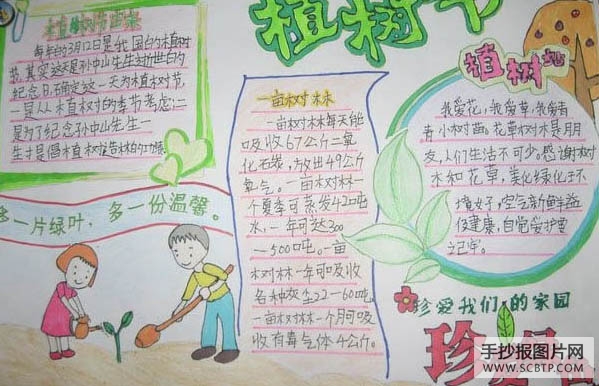 植树节
植树节由来
每年的3月12日是我国的植树
节,其实这天是孙中山先生逝世的
纪念日,确定这一天为植树节,
一是从植树的季节考虑;二
是为了纪念孙中山先生一
生提倡植树造林的功绩
多一片绿叶,多一份温馨。
一亩树林
一亩树林每天能
吸收67公斤二氧
化碳,放出49公斤
氧气。一亩树林一
个夏季可蒸发42吨
水,一年可达300
—500吨。一亩
树林一年可吸收
各种灰尘22—60吨,
一亩树林一个月可吸
收有毒气体4公斤。
植树
我爱花,我爱草,我爱青
青小树苗。花草树木是朋
友,人们生活不可少。感谢树
木和花草,美化绿化环
境好,空气新鲜益
健康,自觉爱护要
记牢。
珍爱我们的家园
珍
手抄报图片网
WWW.SCBTP.COM